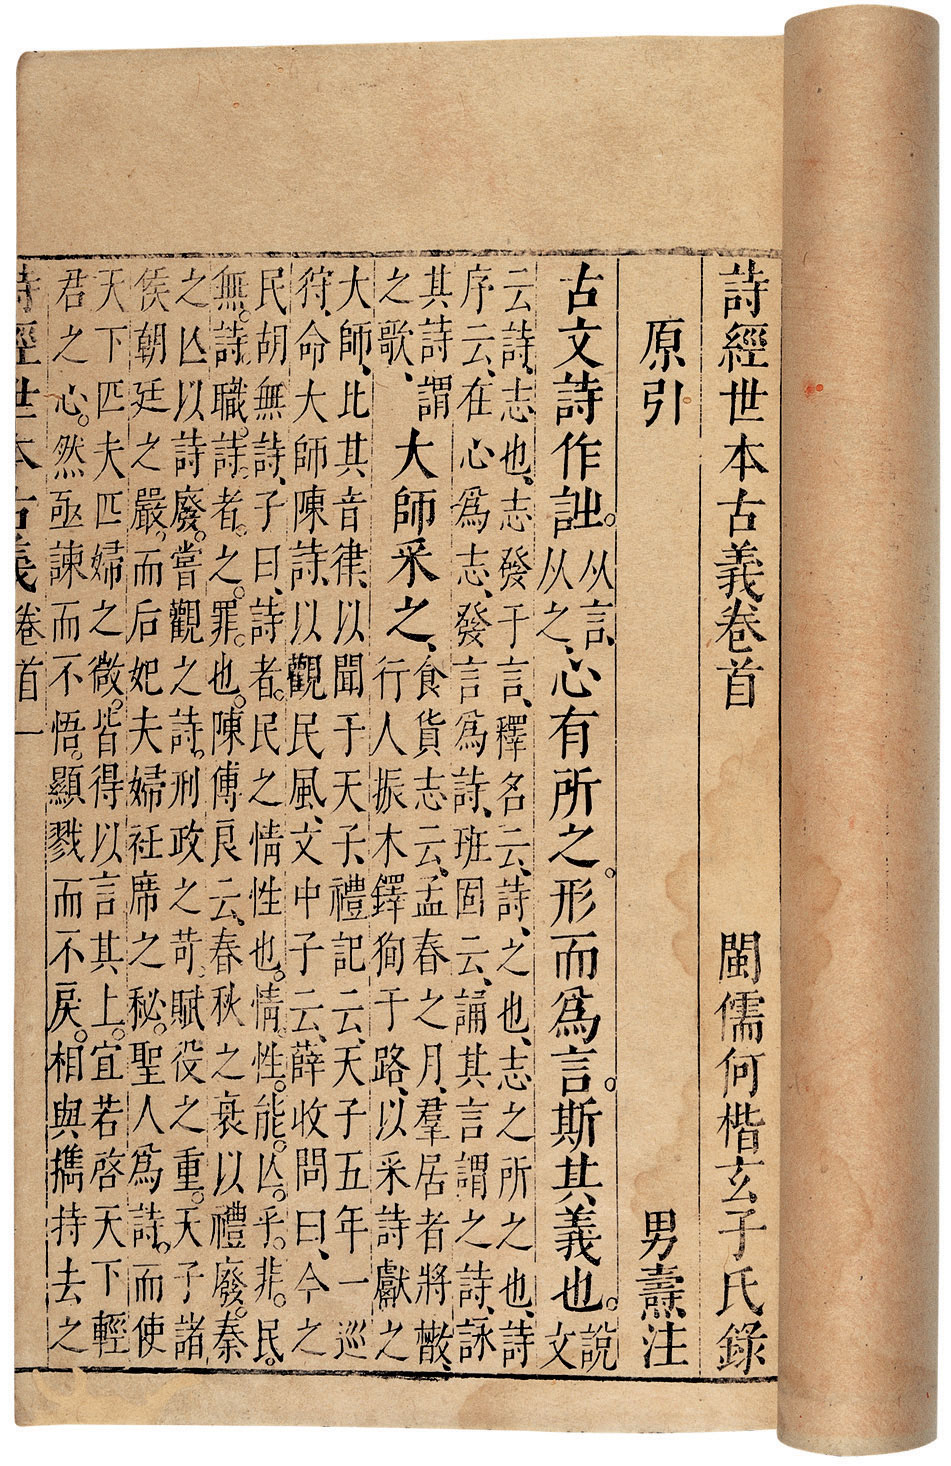 詩經世本古義卷首 閩儒何楷玄子氏錄
原引 男燾注
古文詩作𧥳。从言、从之、心有所之。形而爲言。斯其義也。說文
云詩、志也、志發于言、釋名云、詩、之也、志之所之也、詩
序云、在心爲志、發言爲詩、班固云、誦其言謂之詩、詠
其詩謂之歌、大師采之、食貨志云、孟春之月、羣居者將散、
行人振木鐸狥于路、以采詩獻之
大師、比其音律、以聞于天子、禮記云、天子五年一巡
狩、命大師陳詩、以觀民風、文中子云、薛收問曰、今之
民胡無詩、子曰、詩者。民之情性也。情。性。能。亾。乎。非。民。
無。詩。職。詩。者。之。罪。也。陳傅良云、春秋之衰以禮廢。秦
之亾以詩廢。嘗觀之詩。刑政之苛。賦役之重。天子諸
侯朝廷之嚴。而后妃夫婦衽席之秘。聖人爲詩。而使
天下匹夫匹婦之微。皆得以言其上。宜若啓天下輕
君之心。然亟諫而不悟。顯戮而不戾。相與攜持去之
詩經世本古義 卷首 一